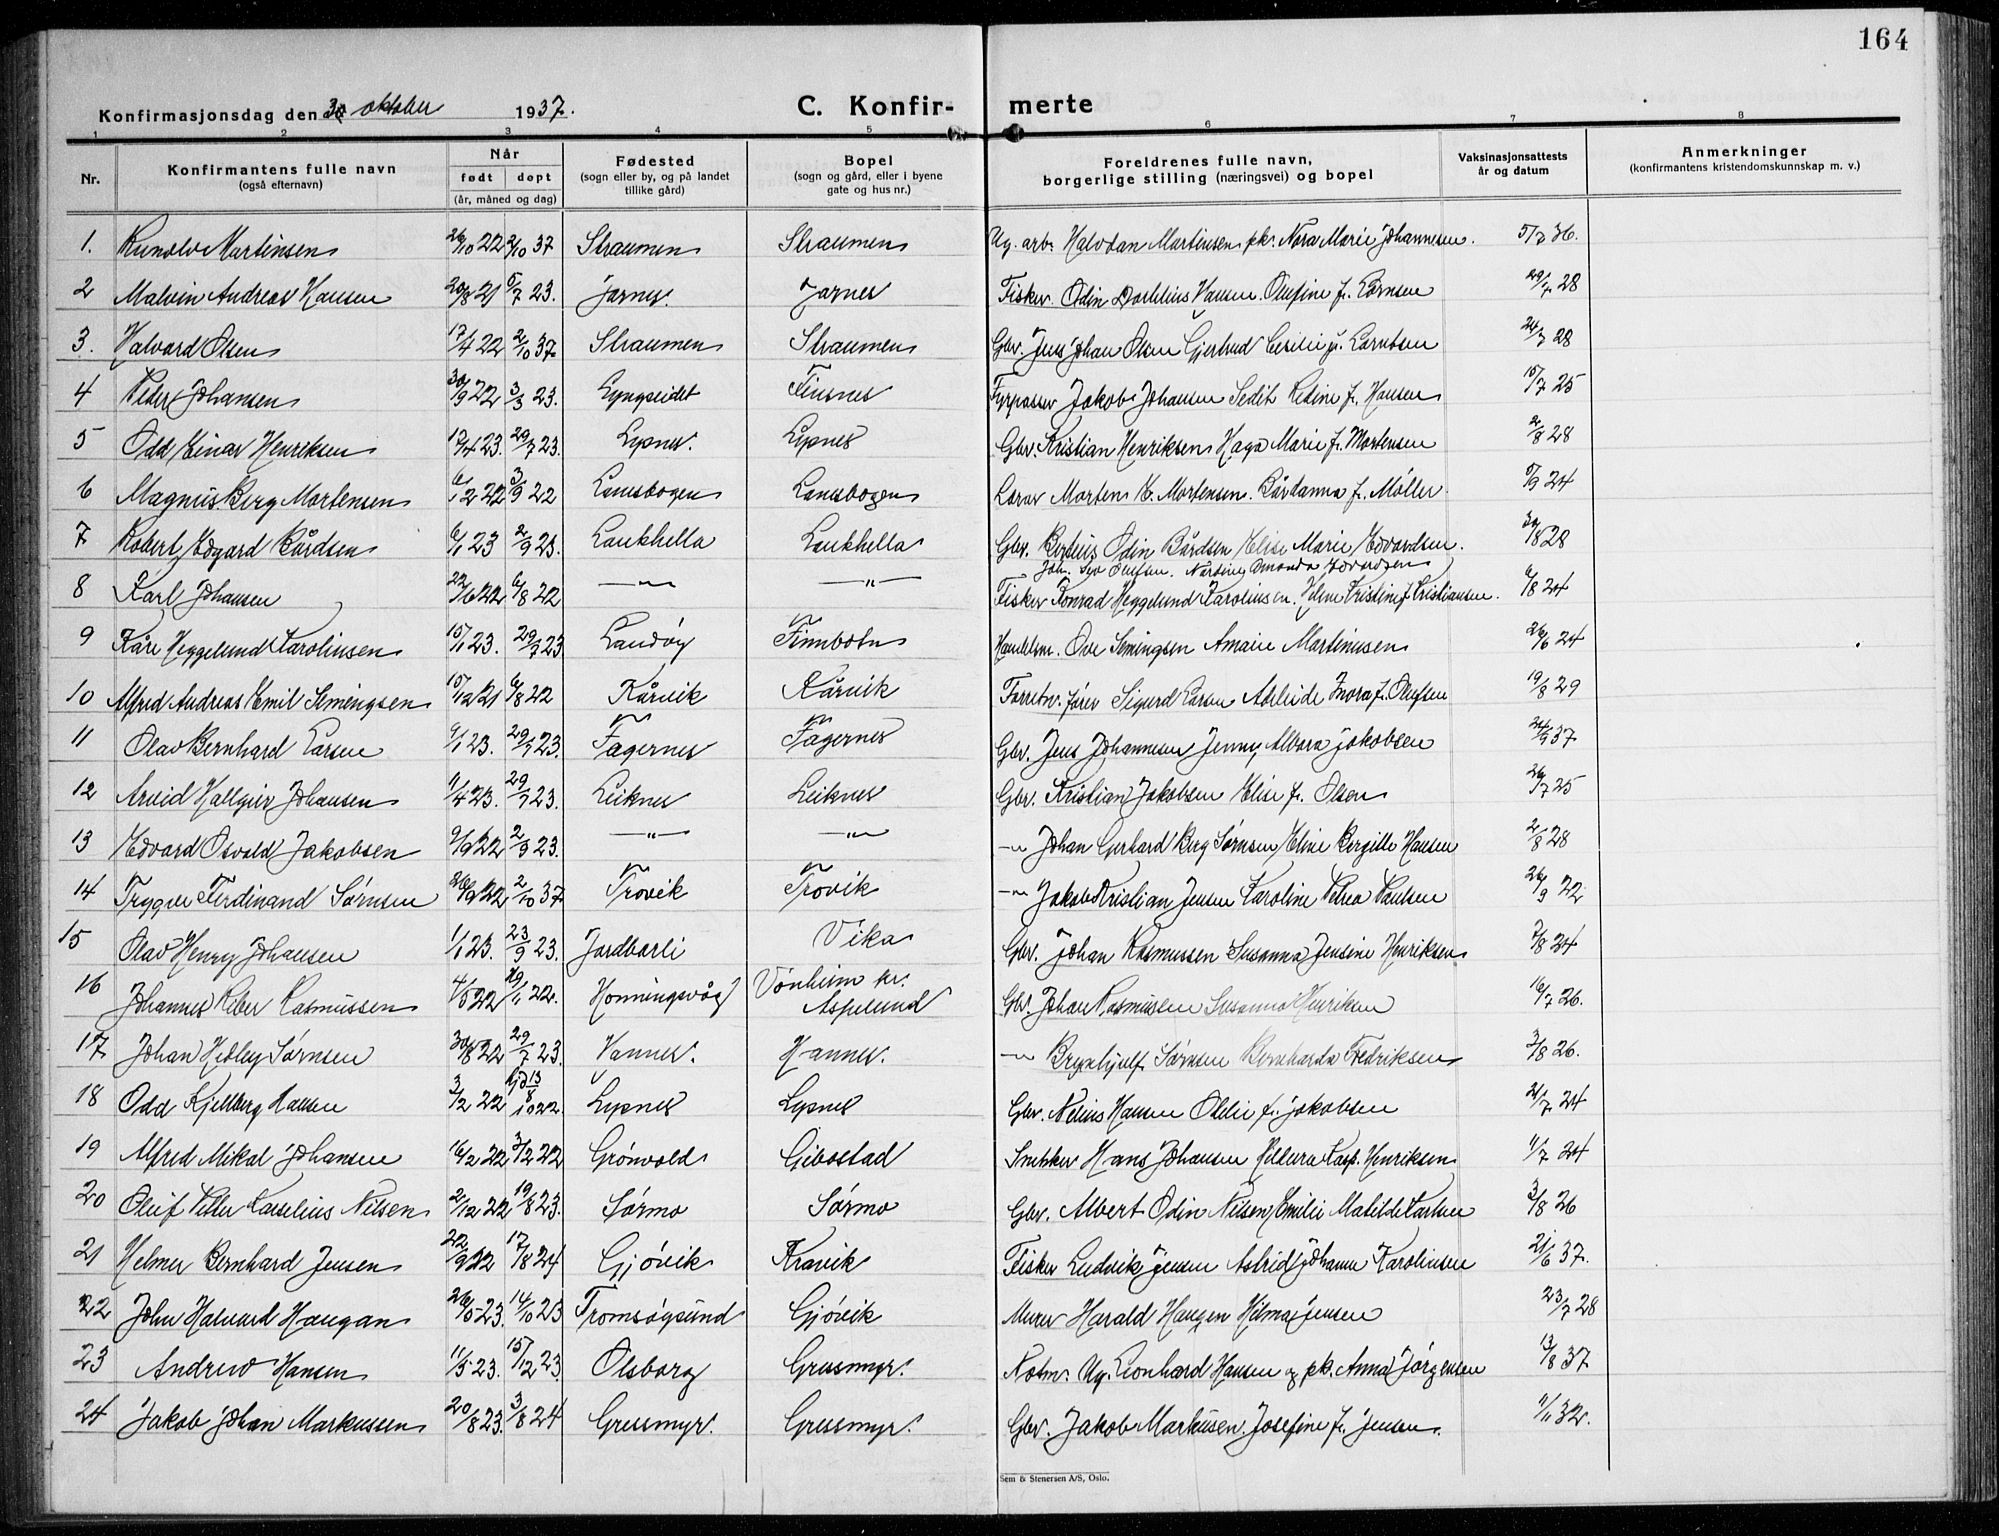 164
Konfirmasjonsdag den 3. oktober 1937.
C. Konfir- merte
1 2 3 4 5 6 7 8
Nr. Konfirmantens fulle navn (også efternavn) Når født døpt (år, måned og dag) Fødested (sogn eller by, og på landet tillike gård) Bopel (sogn og gård, eller i byene gate og hus nr.) Foreldrenes fulle navn, borgerlige stilling (næringsvei) og bopel Vaksinasjonsattests år og datum Anmerkninger (konfirmantens kristendomskunnskap m. v.)
1. Runolv Martinsen 26/10 22 2/10 37 Straumen Straumen Ug. arb. Halvdan Martinsen pk. Nora Marie Johannesen. 5/7 36.
2 Malvin Andreas Hansen 20/8 21 5/7 23. Jarnes. Jarnes Fisker. Odin Dorthius Hansen. Olufine f. Lornsen 29/7 28
3. Halvard Olsen 17/4 22 2/10 37 Straumen Straumen Gbr. Jens Johan Olsen Gjertrud Cecilie f. Berntsen 24/7 28
4 Peder Johansen 30/9 22 3/3 23. Lyngseidet Finsnes Fyrpasser Jakob Johansen Sedit Kedine f. Hansen 15/7 25
5 Odd Einar Henriksen 17/4 23. 29/7 23. Lysnes. Lysnes Gbr. Kristian Henriksen Haga Marie f. Mortensen 2/8 28
6 Magnus Berg Mortensen 6/12 22 3/9 22 Lanesbogen Lanesbogen Lærer Morten H. Mortensen. Bårdanna f. Møller. 5/9 24
7 Robert Edgard Bårdsen 6/1 23 2/9 23. Laukhella Laukhella Gbr. Bertius Odin Bårdsen Elise Marie Edvardsen. 30/8 28
Joh. Olufsen. Nardine Amanda Edvardsen
8 Karl Johansen 22/6 22 6/8 22 —"— —"— Fisker Konrad Heggelund Karolinsen. Helene Kristine f. Kristiansen. 6/8 24
9 Kåre Heggelund Karolinsen 15/1 23. 29/7 23 Landøy Finnbotn Handelsm. Ove Semingsen Amalie Martinusen 26/6 24
10 Alfred Andreas Emil Semingsen 15/12 21 6/8 22 Kårvik Kårvik Forretn. fører Sigurd Larsen Adeleide Inora f. Olufsen 19/8 29
11 Olav Bernhard Larsen 6/1 23. 29/7 23. Fagernes Fagernes Gbr. Jens Johannesen Jenny Albora Jakobsen 24/9 37
12 Arvid Hallgeir Johansen 11/4 23. 29/7 23. Leiknes Leiknes Gbr. Kristian Jakobsen Elise f. Olsen 26/7 25
13 Edvard Osvald Jakobsen 9/9 22 2/9 23. —"— —"— —"— Johan Gerhard Berg Sørnsen Eline Bergitte Hansen 2/8 28
14 Trygve Ferdinand Sørnsen 26/9 22 2/10 37. Trovik Trovik —"— Jakob Kristian Jensen Karoline Petrea Paulsen 26/9 22
15 Olav Henry Johansen 1/1 23. 23/9 23. Jordbærli Vika Gbr. Johan Rasmussen Susanna Jensine Henriksen 7/8 24
16 Johannes Peber Rasmussen 4/5 22 19/11 22. Honningsvåg Vonheim pr. Aspelund Gbr. Johan Rasmussen Susanna Henriksen 16/7 26.
17 Johan Hedley Sørnsen 30/8 22 29/7 23. Vannes. Hannes. —"— Brynhjulf Sørnsen Bernharda Fredriksen 3/8 26.
18 Odd Kjellberg Hansen 3/2 22 Gjd 13/8 1922. Lysnes Lysnes Gbr. Nelius Hansen Oldie f. Jakobsen 21/7 24
19 Alfred Mikal Johansen 16/2 22 3/12 22 Grønvold Gibostad Snekker Hans Johansen Helluva Kasp. Henriksen 11/7 24
20 Oluf Peller Karelius Nilsen 2/12 22 19/8 23. Sørmo Sørmo Gbr. Albert Odin Nilsen Emilie Matilde Karlsen 3/8 26
21 Helmer Bernhard Jensen 22/9 22 17/8 24 Gjøvik Kravik Fisker Ludvik Jensen Astrid Johanne Karolinsen 21/6 37.
22 John Halvard Haugan 26/5 23. 14/10 23 Tromsøysund Gjøvik Murer Harald Haugen Hilma Jensen 23/7 28
23 Andrew Hansen 11/5 23. 15/12 23. Olsborg Gressmyr. Notm. Ug. Leonhard Hansen og pk. Anna Jørgensen 13/8 37
24 Jakob Johan Markussen 20/8 23. 3/8 24 Gressmyr. Gressmyr. Gbr. Jakob Markusen. Josefine f. Jensen. 11/11 32.
Sem & Stenersen A/S, Oslo.